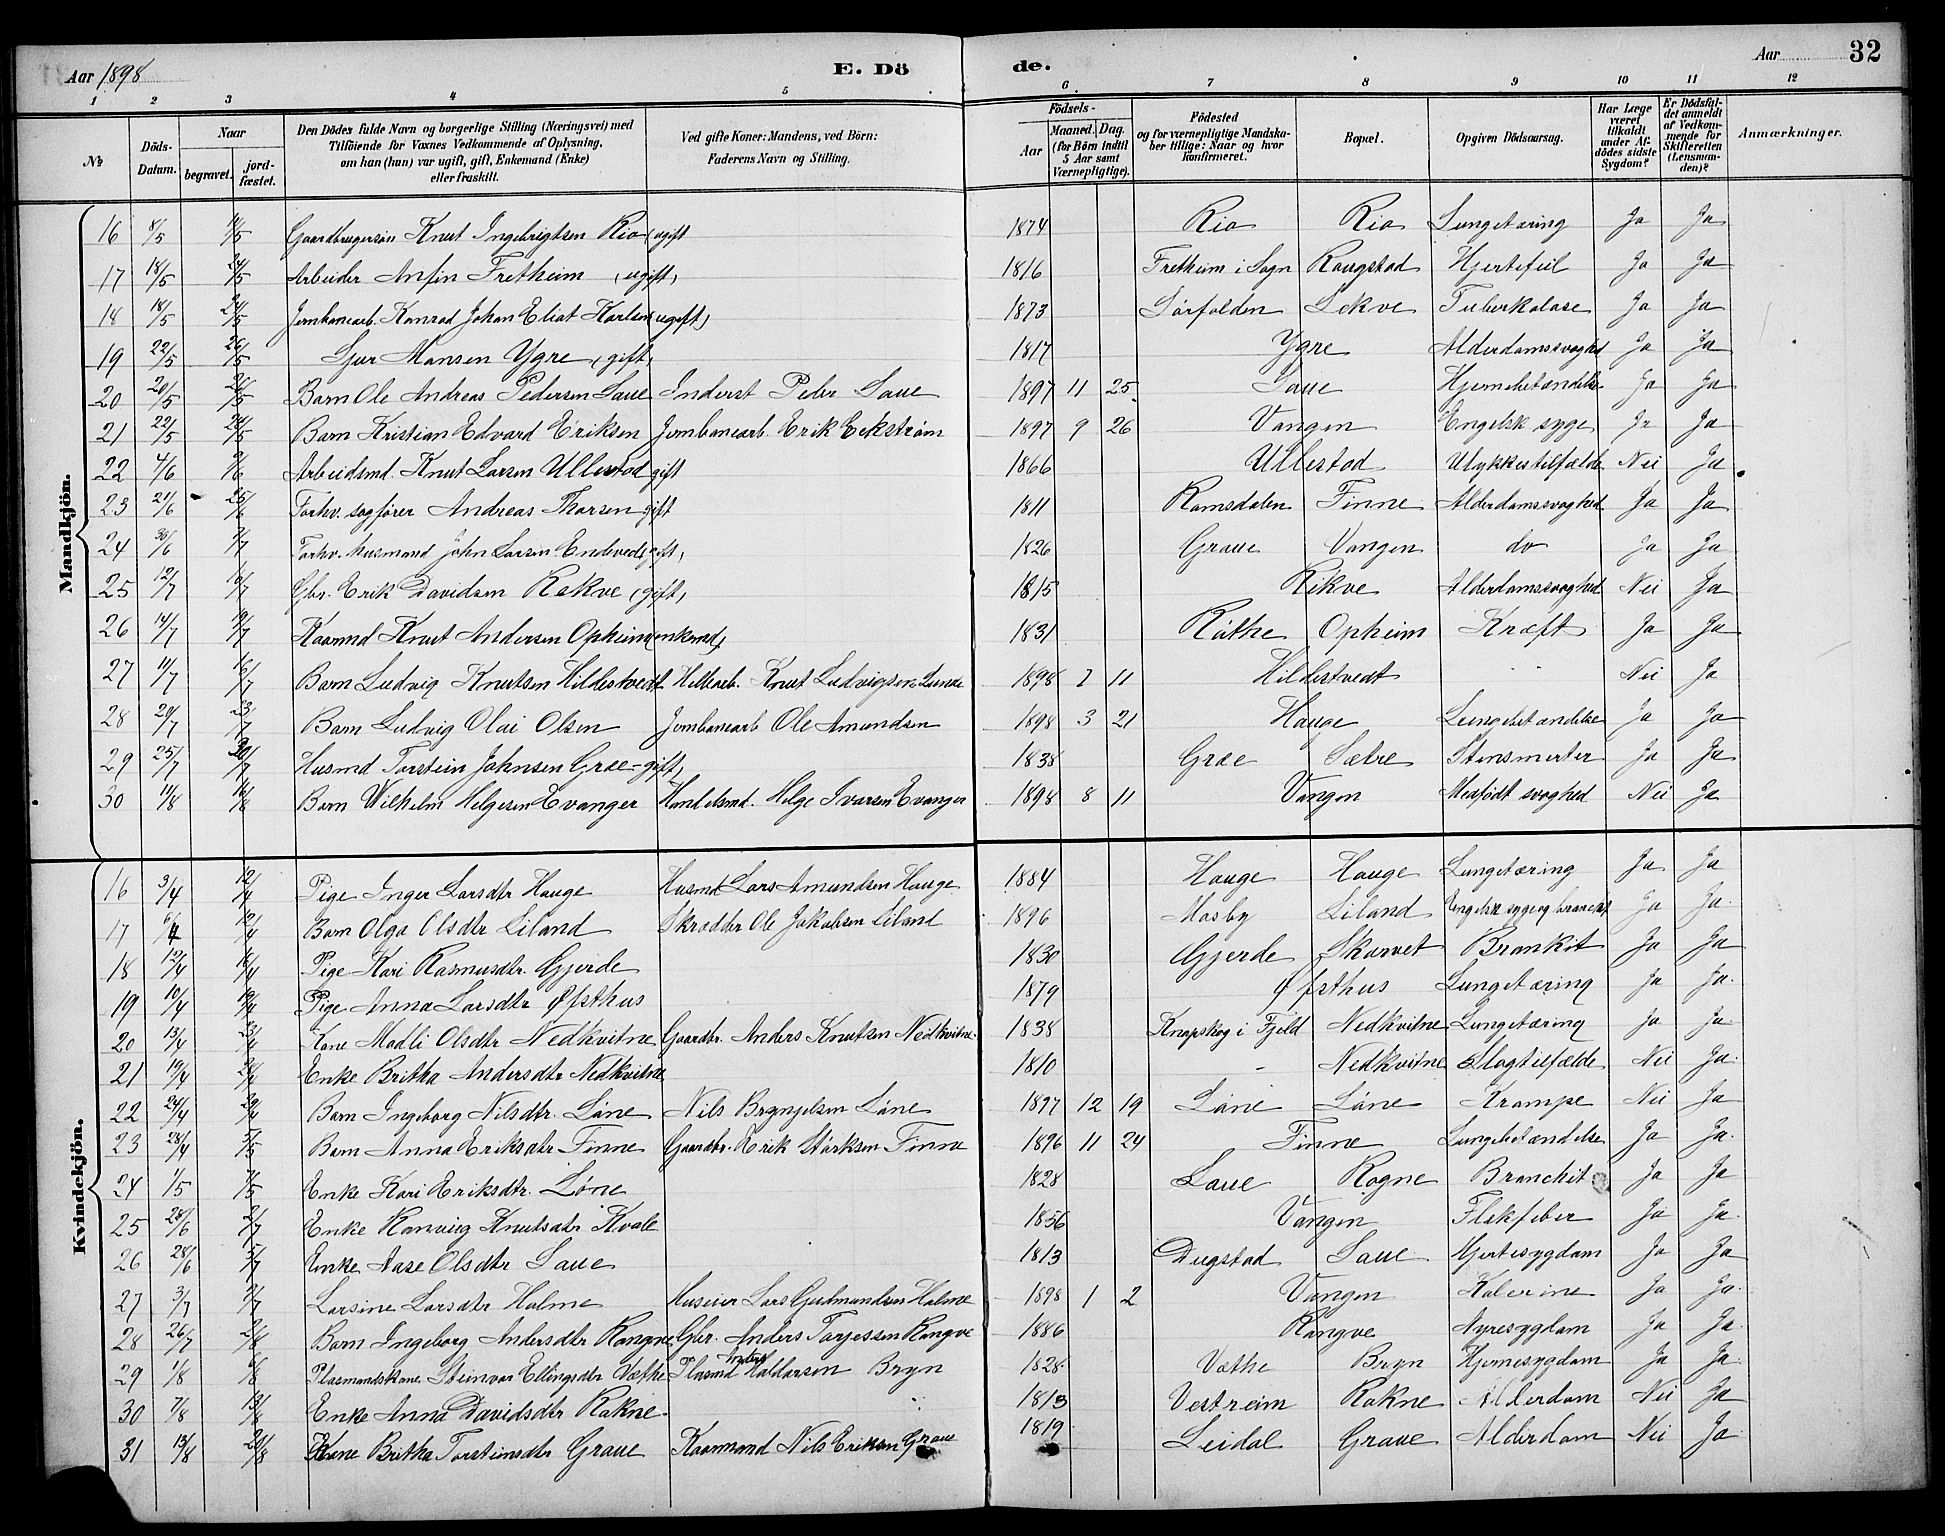 Aar 1898 E. Dö de. Aar 32
1 2 3 4 5 6 7 8 9 10 11 12
№ Döds-Datum. Naar begravet. jord-fæstet. Den Dödes fulde Navn og borgerlige Stilling (Næringsvei) med Tilföiende for Voxnes Vedkommende af Oplysning, om han (hun) var ugift, gift, Enkemand (Enke) eller fraskilt. Ved gifte Koner: Mandens, ved Börn: Faderens Navn og Stilling. Födsels- Aar Maaned. Dag. (for Börn indtil 5 Aar samt Værnepligtige). Födested og for værnepligtige Mandskaber tillige: Naar og hvor konfirmeret. Bopæl. Opgiven Dödsaarsag. Har Læge været tilkaldt under Afdödes sidste Sygdom? Er Dödsfaldet anmeldt af Vedkommende for Skifteretten (Lensmanden)? Anmærkninger.
Mandkjön.
16 8/5 14/5 Gaardbrugersön Knut Ingebrigtsen Rio (ugift 1874 Rio Rio Lungetæring Ja Ja
17 18/5 24/5 Arbeider Anfin Fretheim (ugift) 1816 Fretheim i Sogn Raugstad Hjertefeil Ja Ja
18 18/5 24/5 Jernbanearb. Konrad Johan Eliat Karlsen (ugift) 1873 Sörfolden Lekve Tuberkulose Ja Ja
19 22/5 26/5 Sjur Monsen Ygre (gift) 1817 Ygre Alderdomssvaghed Ja Ja
20 20/5 26/5 Barn Ole Andreas Pedersen Saue Inderst Peder Saue 1897 11 25 Saue Hjernebetændelse Ja Ja
21 22/5 28/5 Barn Kristian Edvard Eriksen Jernbanearb. Erik Eckström 1897 9 26 Vangen Engelsk syge Ja Ja
22 4/6 Arbeidsmd. Knut Larsen Ullestad gift 1866 Ullestad Ulykkestilfælde Nei Ja
23 21/6 25/6 Forhv. sagförer Andreas Thorsen gift 1811 Romsdalen Finne Alderdomssvaghed Ja Ja
24 30/6 7/7 Forhv. husmand John Larsen Endeved gift, 1826 Graue Vangen do Ja Ja
25 12/7 Gbr. Erik Davidsen Rokve (gift) 1815 Rikve Alderdomssvaghed Nei Ja
26 14/7 19/7 Kaarmd Knut Andersen Opheim (enkemd) 1831 Röthe Opheim Kræft Ja Ja
27 11/7 16/7 Barn Ludvig Knutsen Hildestvedt Knut Ludvigsen Lunde 1898 11 Hildestvedt Nei Ja
28 20/7 23/7 Barn Ludvig Olai Olsen Jernbanearb Ole Amundsen 1898 3 21 Hauge Lungebetændelse Ja Ja
29 25/7 30/7 Husmd Torstein Johnsen Græe - gift, 1838 Græe Sætre Stensmerter Ja Ja
30 11/8 16/8 Barn Wilhelm Helgesen Evanger Handelsmd. Helge Ivarsen Evanger 1898 8 11 Vangen Medfödt svaghed Nei Ja
Kvindekjön.
16 3/4 12/4 Pige Inger Larsdtr Hauge Husmd Lars Amundsen Hauge 1884 Hauge Hauge Lungetæring Ja Ja
17 6/4 12/4 Barn Olga Olsdtr Liland Skrædder Ole Jakobsen Liland 1896 Mosby Liland Engelsk syge og bronchit Ja Ja
18 12/4 16/4 Pige Kari Rasmusdtr. Gjerde 1830 Gjerde Skorvet Bronkit Ja Ja
19 10/4 19/4 Pige Anna Larsdtr Øfsthus 1879 Øfsthus Lungetæring Ja Ja
20 13/4 23/4 Kone Madli Olsdtr Nedkvitne Gaardbr. Anders Knutsen Nedkvitne 1838 Knapskog i Fjeld Nedkvitne Lungetæring Ja Ja
21 19/4 28/4 Enke Britha Andersdtr Nedkvitne 1810 - Nedkvitne Slagtilfælde Nei Ja
22 24/4 29/4 Barn Ingeborg Nilsdtr. Löne Nils Brynjelsen Löne 1897 12 19 Löne Löne Krampe Nei Ja
23 28/4 Barn Anna Eriksdtr Finne Gaardbr. Erik Störksen Finne 1896 11 24 Finne Lungebetændelse Ja Ja
24 1/5 7/5 Enke Kari Eriksdtr. Löne 1828 Saue Rogne Bronchit Ja Ja
25 28/6 2/7 Enke Ranveig Knutsdtr Kvale 1856 Vangen Flekfeber Ja Ja
26 28/6 5/7 Enke Aase Olsdtr Saue 1813 Dugstad Saue Hjertesygdom Ja Ja
27 3/7 Larsine Larsdtr Holme Huseier Lars Gudmundsen Holme 1898 1 2 Vangen Kolerine Ja Ja
28 26/7 2/8 Barn Ingeborg Andersdtr Rongve Gbr. Anders Torjessen Rongve 1886 Rongve Nyresygdom Ja Ja
29 1/8 6/8 Plasmandskone Steinvor Ellingsdtr Væthe Plasmd Anders Haldorsen Bryn 1828 Væthe Bryn Hjernesygdom Ja Ja
30 7/8 13/8 Enke Anna Davidsdtr Rokne 1813 Vestreim Rokne Alderdom Nei Ja
31 13/8 20/8 Kone Britha Torsteinsdtr Graue Kaarmand Nils Eriksen Graue 1819 Leidal Graue Alderdom Nei Ja